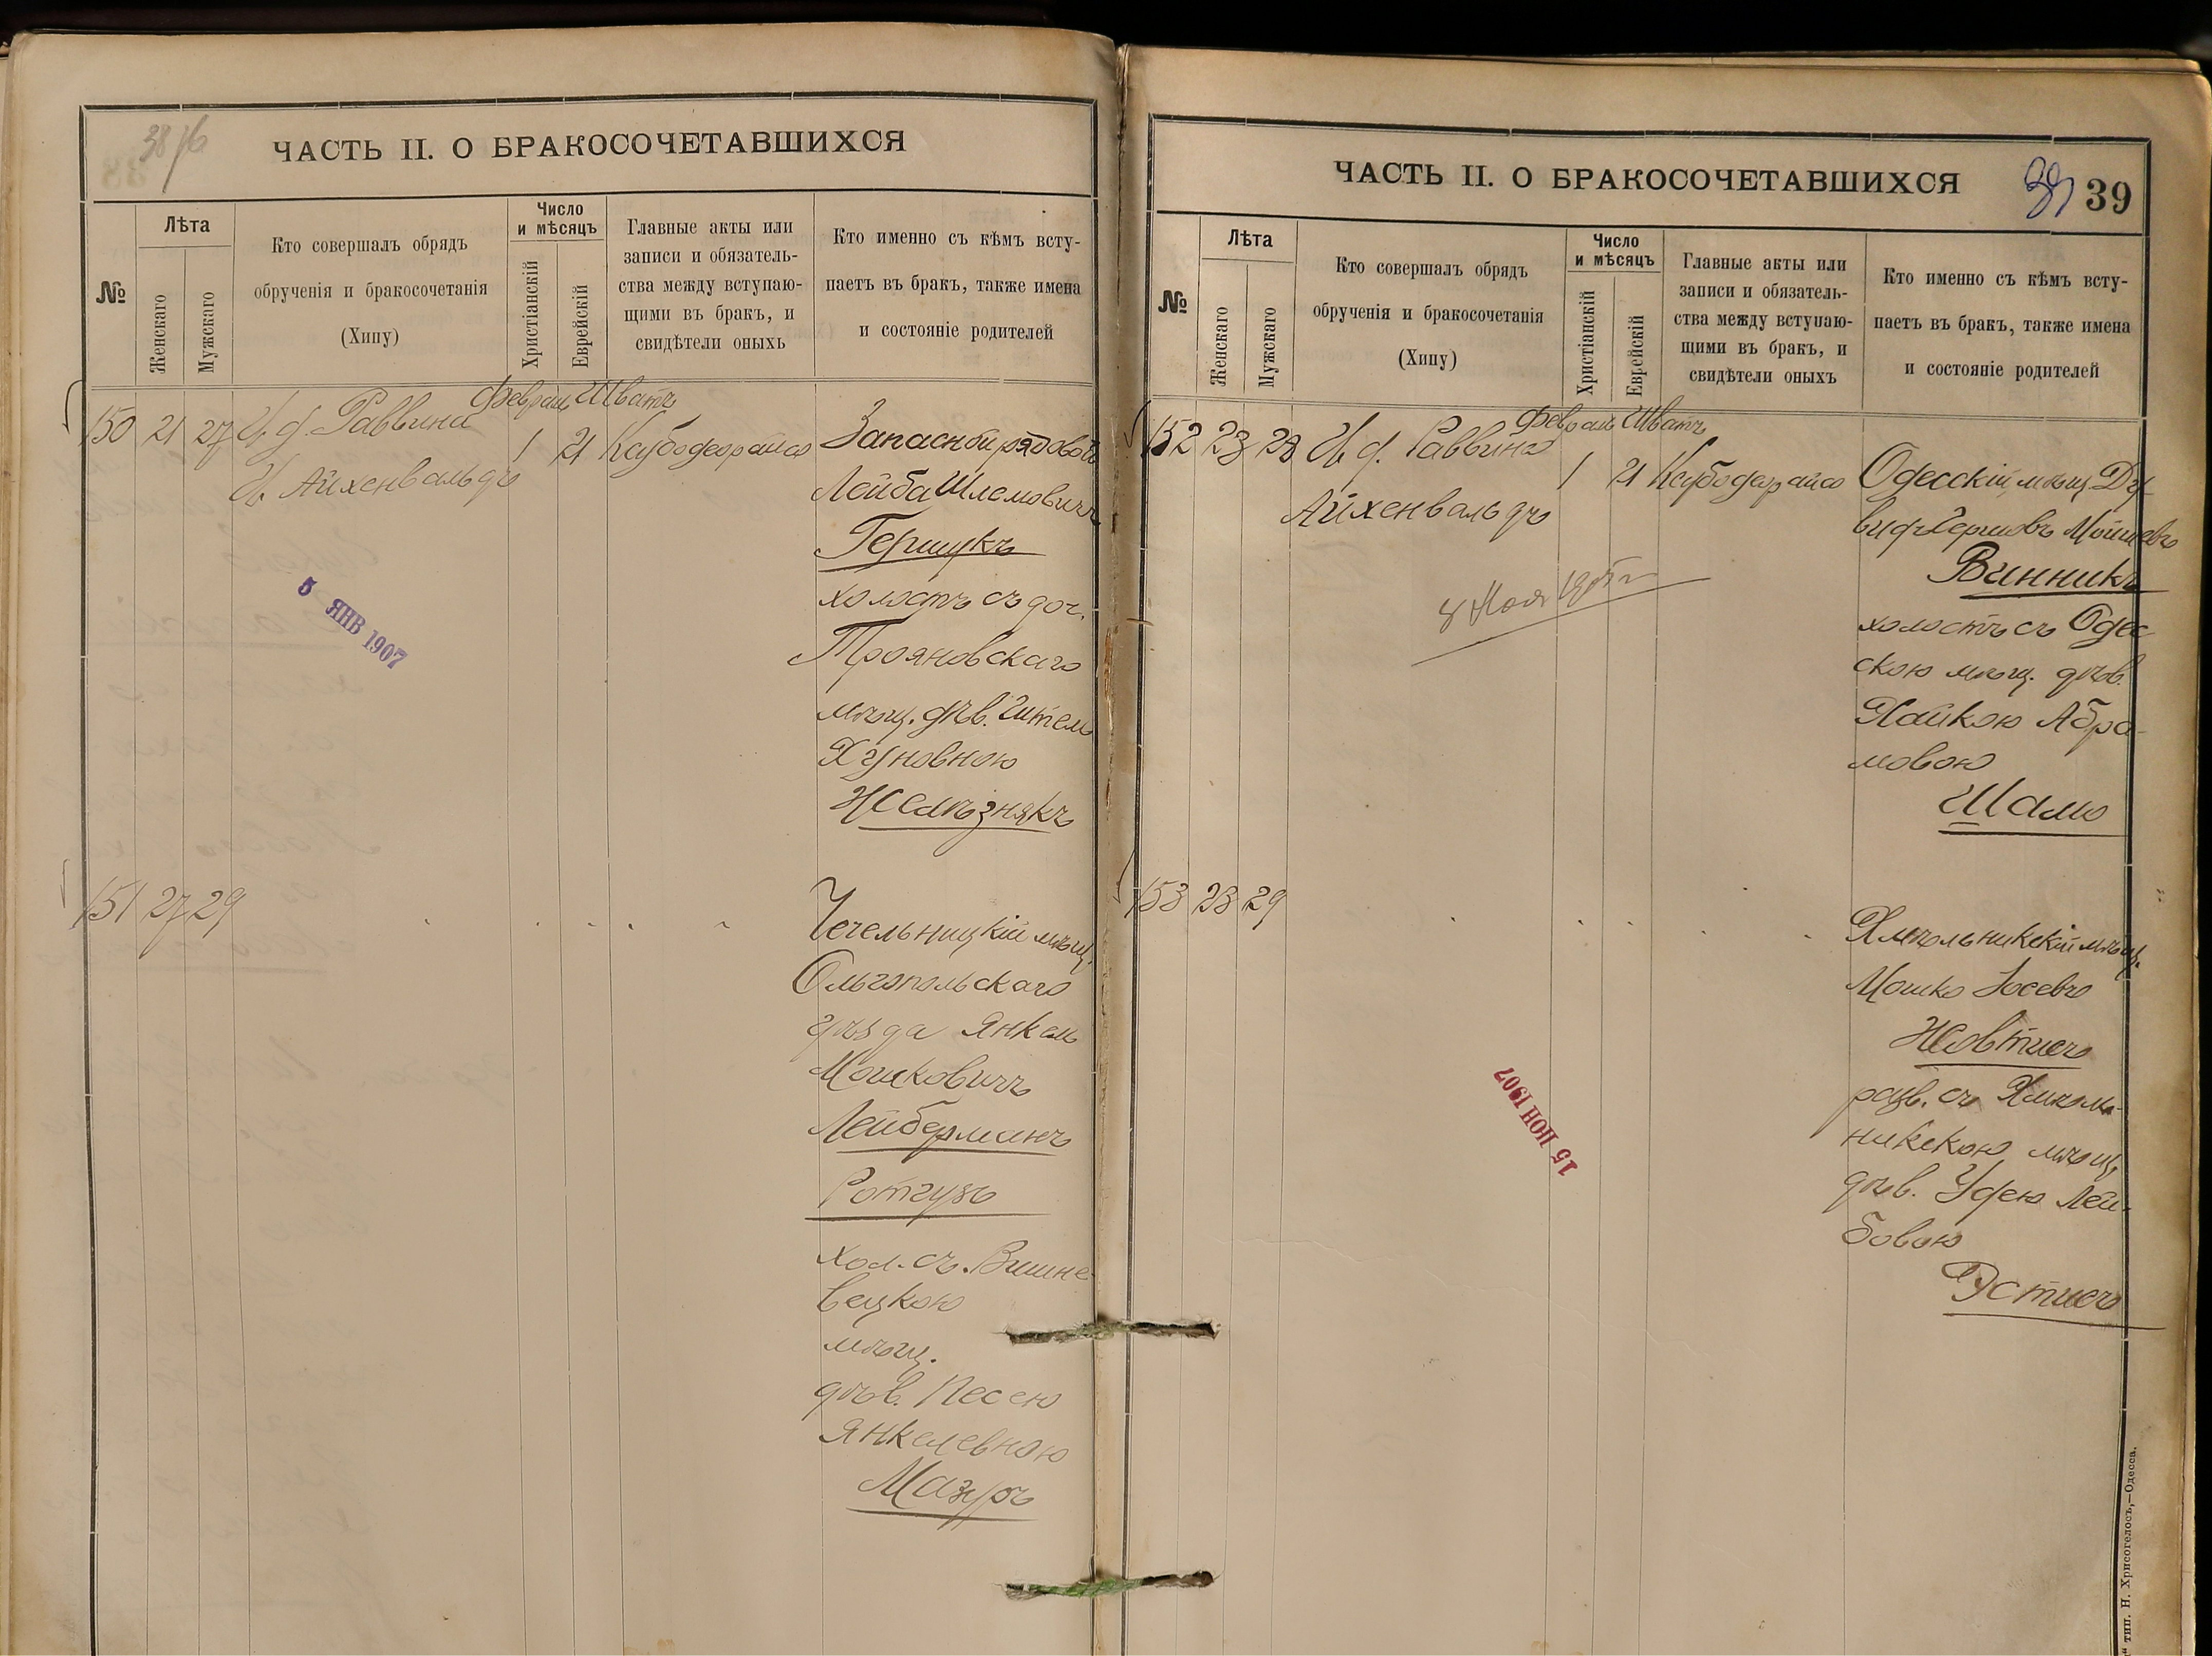 38 об
ЧАСТЬ II. О БРАКОСОЧЕТАВШИХСЯ
№
Лѣта
Женскаго
Мужскаго
Кто совершалъ обрядъ
обрученія и бракосочетанія
(Хипу)
Число
и мѣсяцъ
Христіанскій
Еврейскій
Главные акты или
записи и обязатель-
ства между вступаю-
щими въ бракъ, и
свидѣтели оныхъ
Кто именно съ кѣмъ всту-
паетъ въ бракъ, также имена
и состояніе родителей
Февраль Шватъ
150 21 27 И. д. Раввина
И. Айхенвальдъ
1 21 Каубодерайсо
Запасный рядовой
Лейба Шлемовичъ
Гершукъ
холостъ съ доч.
Трояновскаго
мѣщ. дѣв. Итель
Хуновною
Желѣзнякъ
5 ЯНВ 1907
151 27 29
Чечельницкій мѣщ.
Ольгопольскаго
уѣзда Янкель
Мошковичъ
Лейберманъ
Ротгузъ
хол. съ Вишне-
вецкою
мѣщ.
дѣв. Песею
Янкелевною
Мазуръ
ЧАСТЬ II. О БРАКОСОЧЕТАВШИХСЯ
39 39
№
Лѣта
Женскаго
Мужскаго
Кто совершалъ обрядъ
обрученія и бракосочетанія
(Хипу)
Число
и мѣсяцъ
Христіанскій
Еврейскій
Главные акты или
записи и обязатель-
ства между вступаю-
щими въ бракъ, и
свидѣтели оныхъ
Кто именно съ кѣмъ всту-
паетъ въ бракъ, также имена
и состояніе родителей
Февраль Шватъ
152 23 28 И. д. Раввина
Айхенвальдъ
1 21 Каубодерайсо
Одесскій мѣщ. Ду
видъ-Гершовъ Мошевъ
Винникъ
холостъ съ Одес
скою мѣщ. дѣв.
Хайкою Абра-
мовою
Шамо
153 23 29
Хмѣльникскій мѣщ.
Мошко Іосевъ
Жовтисъ
разв. съ Хмѣль-
никскою мѣщ
дѣв. Удею Лей-
бовою
Устисъ
15 ІЮН 1907
тип. Н. Хрисогелосъ,—Одесса.